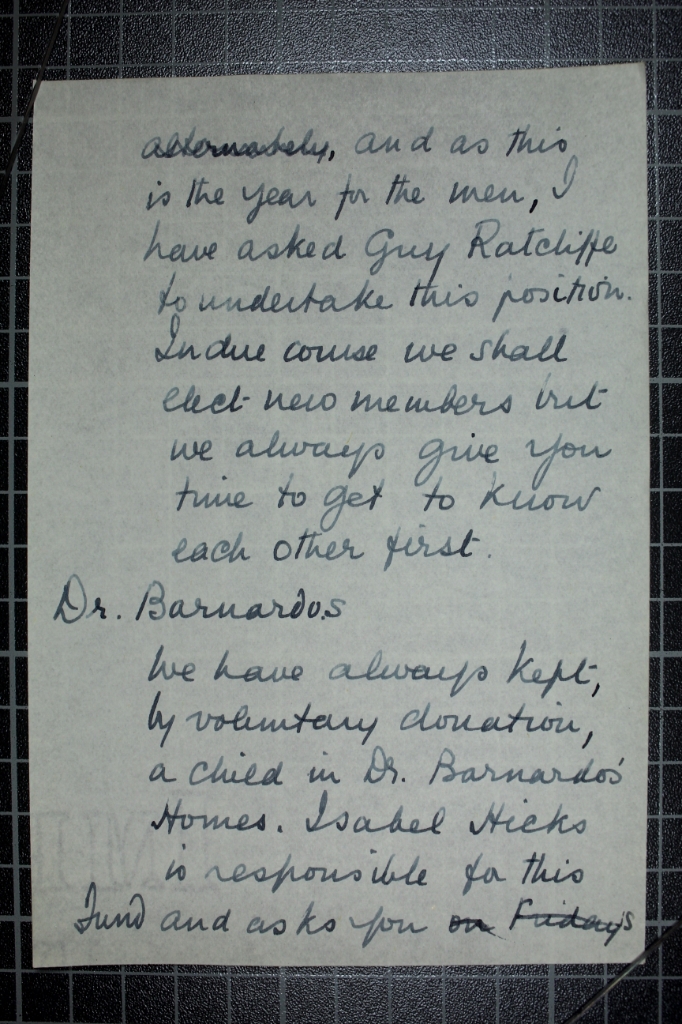 alternately, and as this
is the year for the men, I
have asked Guy Ratcliffe
to undertake this position.
In due course we shall
elect new members but
we always give you
time to get to know
each other first.
Dr. Barnardo.s
We have always kept,
by voluntary donation,
a child in Dr. Barnardo's
Homes. Isabel Hicks
is responsible for this
Fund and asks you on Friday's